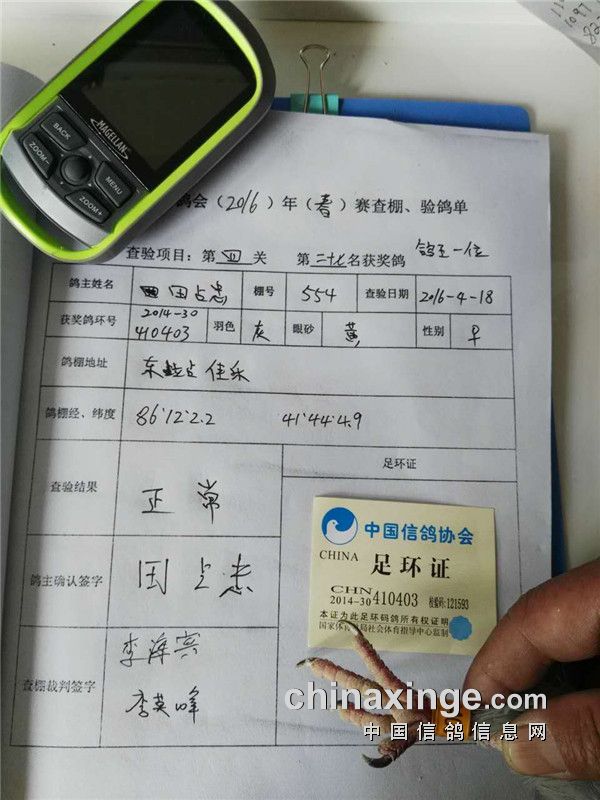 MAGELLAN
BACK
MENU
ZOOM-
ZOOM+
鸽会(2016)年(春)赛查棚、验鸽单
查验项目:第四关 第二十七名获奖鸽 鸽王一位
鸽主姓名 田占忠 棚号 554 查验日期 2016-4-18
获奖鸽环号 2014-30 410403 羽色 灰 眼砂 黄 性别
鸽棚地址 佳乐
鸽棚经、纬度 86°12'2.2 41°44'4.9
足环证
查验结果 正常
鸽主确认签字 田占忠
查棚裁判签字 李海宾
李英峰
中国信鸽协会
CHINA 足环证
CHN
2014-30 410403 检验码:121593
本证为此足环码鸽所有权证明
国家体 局社会体育指导中心监制
chinaxinge.com
中国信鸽信息网